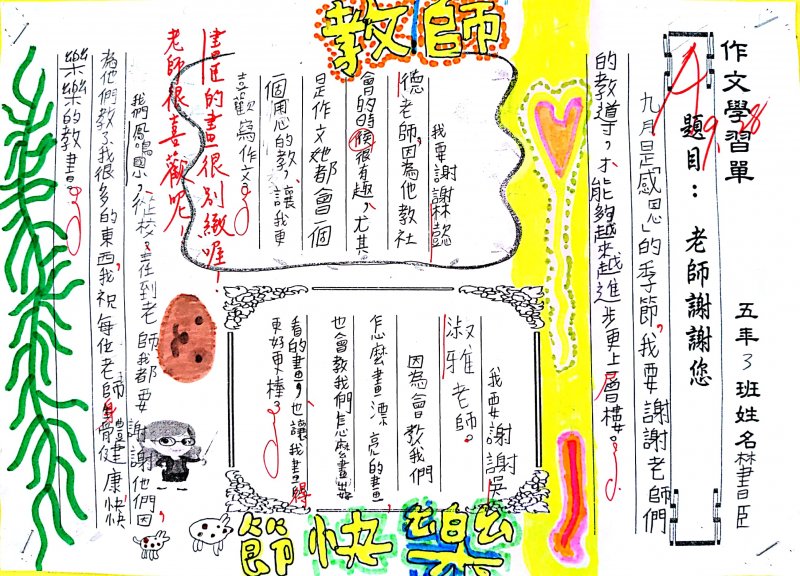 教師
節快樂
作文學習單
9.28
題目：老師謝謝您
五年3班姓名林書臣
九月是「感恩」的季節，我要謝謝老師們
的教導，才能夠越來越進步更上層樓。
我要謝謝林懿
德老師，因為他教社
會的時候很有趣，尤其
是作文她都會一個
個用心的教，讓我更
喜歡寫作文。
我要謝謝吳
淑雅老師。
因為會教我們
怎麼畫漂亮的畫，
也會教我們怎麼畫出好
看的畫，也讓我畫得
更好更棒。
書臣的畫很別緻喔！
老師很喜歡呢！
我們鳳鳴國小，從校主任到老師我都要謝謝他們因
為他們教了我很多的東西，我祝每位老師身體健康快快
樂樂的教書。